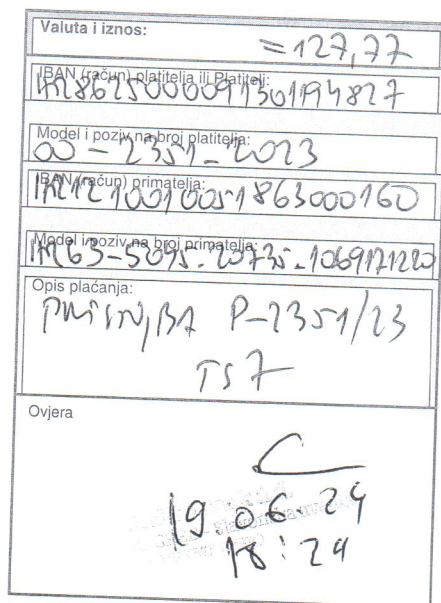 Valuta i iznos:
=127,77
IBAN (račun) platitelja ili Platitelj:
Model i poziv na broj platitelja:
00-2351-2023
IBAN (račun) primatelja:
HR1210010051863000160
Model i poziv na broj primatelja:
HR63-5095-20735-1069171220
Opis plaćanja:
P-2351/23
Ovjera
19.06.24
18:24